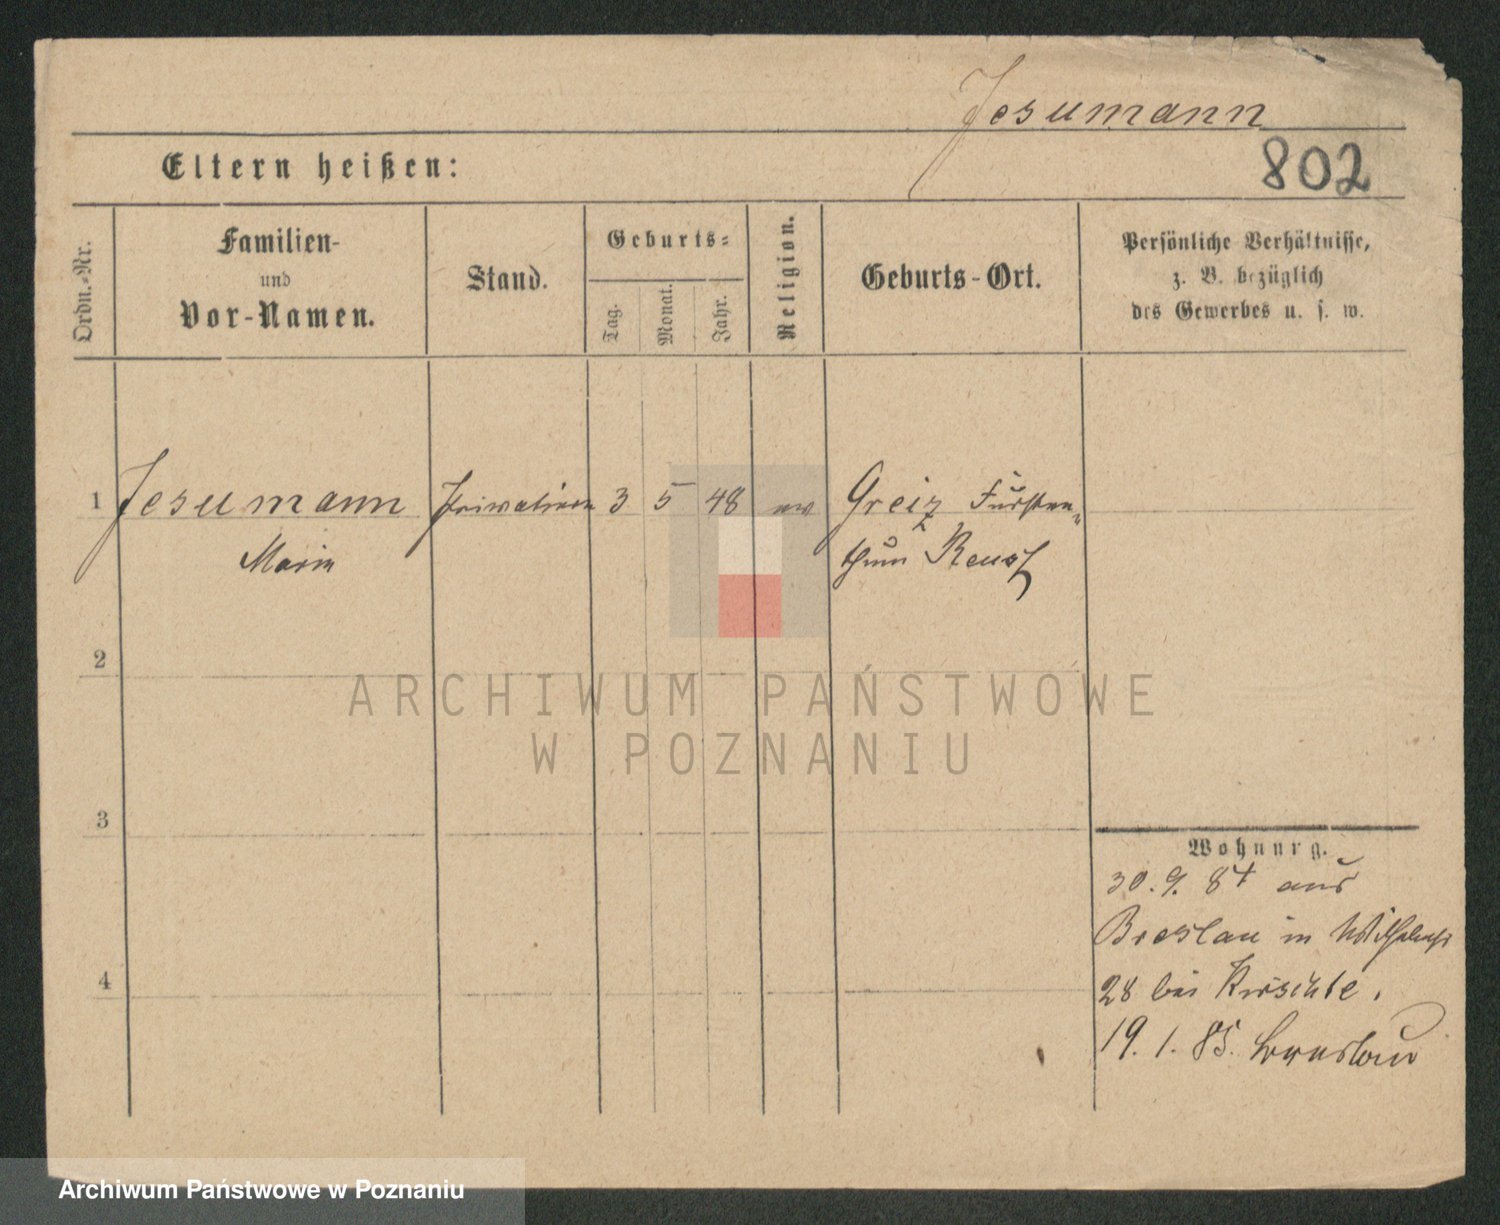 Jesumann
Eltern heißen:
802
Ordn.-Nr.
Familien-
und
Vor-Namen.
Stand.
Geburts-
Tag.
Monat.
Jahr.
Religion.
Geburts-Ort.
Persönliche Verhältnisse,
z. B. bezüglich
des Gewerbes u. s. w.
1 Jesumann Privatiere 3 5 48 ev Greiz Fürsten-
Marie thum Reuß
2
ARCHIWUM PAŃSTWOWE
W POZNANIU
3
Wohnung.
30. 9. 84 aus
Breslau in Wilhelmstr
4
28 bei
19. 1. 85. Breslau
Archiwum Państwowe w Poznaniu